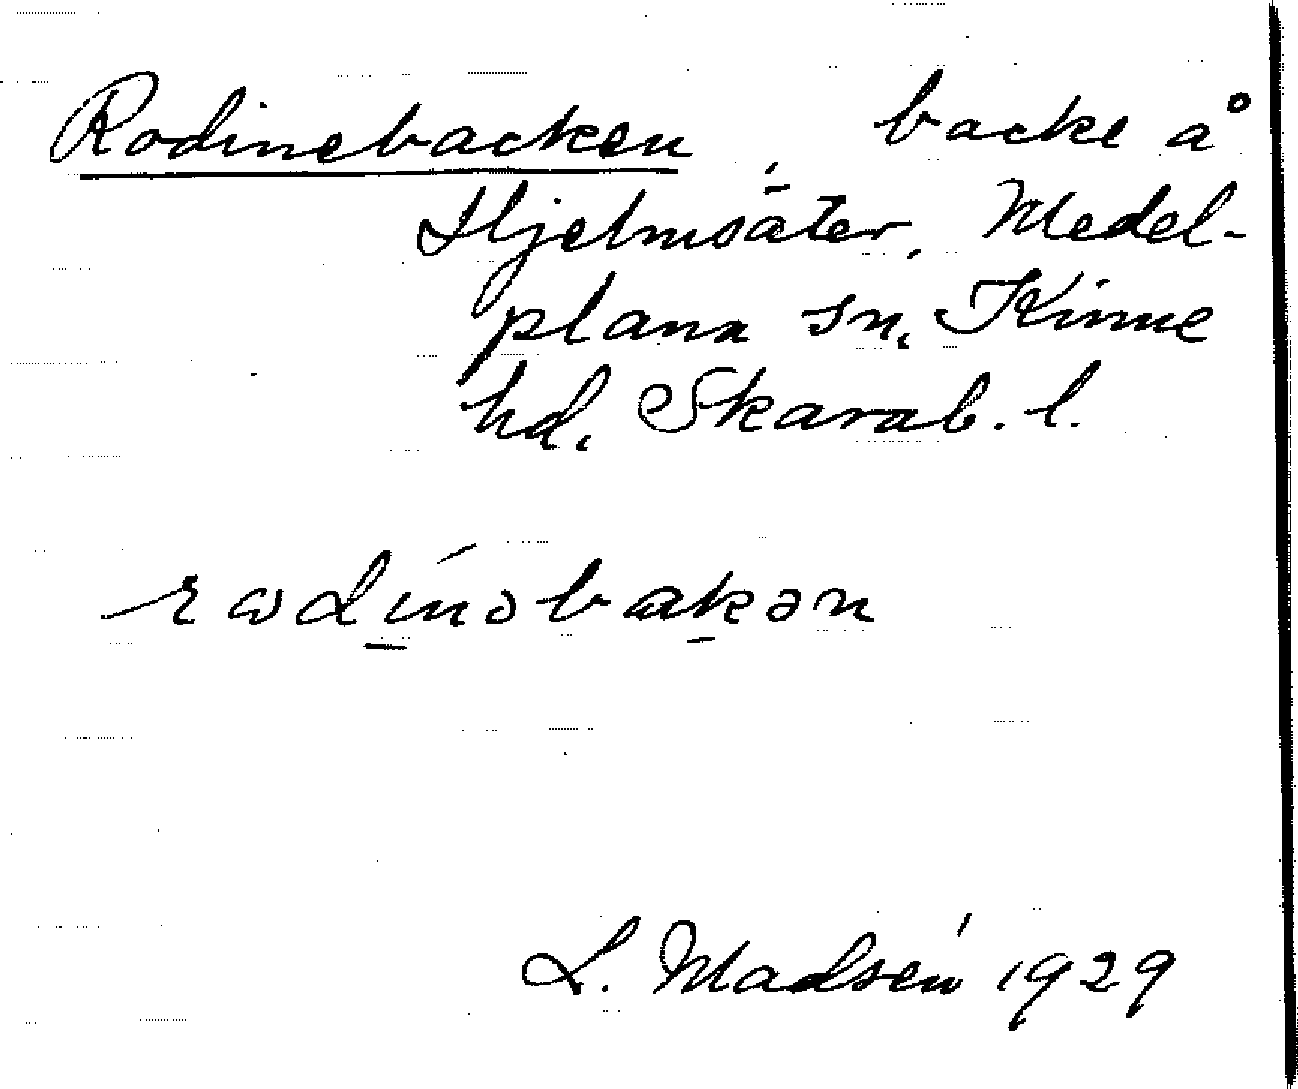 Rodinebacken, backe å
Hjelmsäter, Medel-
plana sn, Kinne
hd, Skarab. l.
L. Madsén 1929